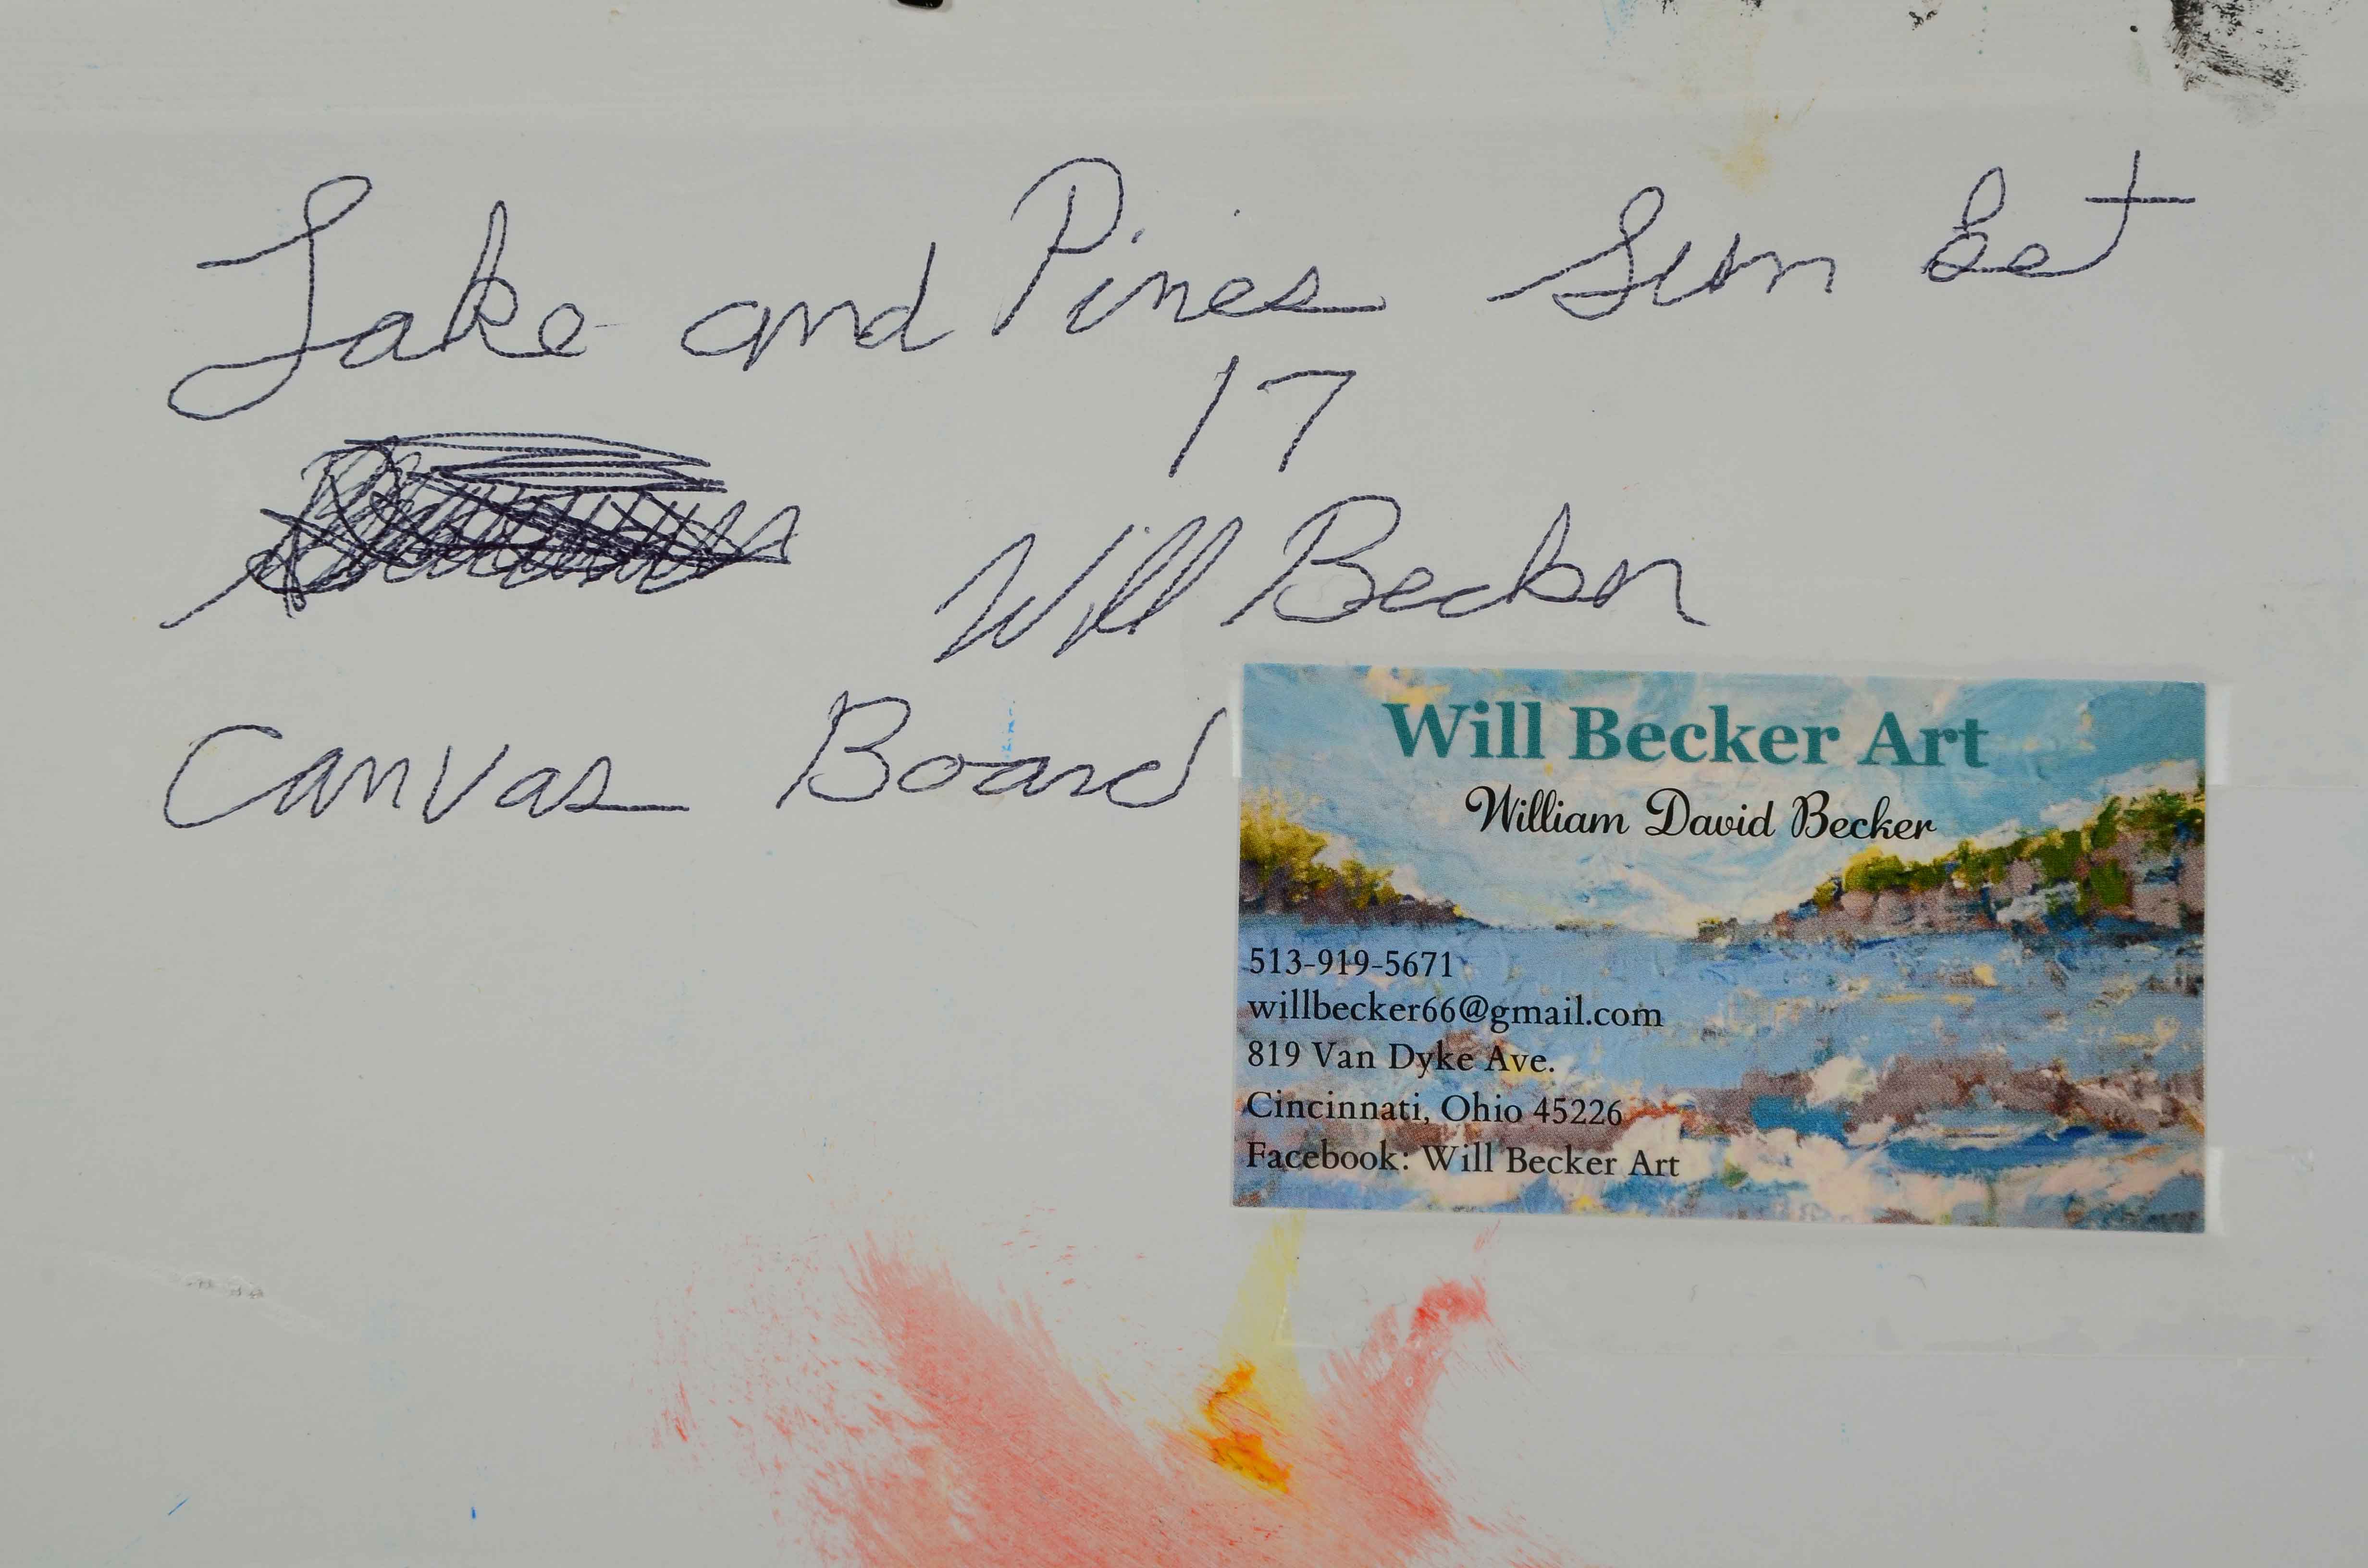 Lake and Pines Sun Set
17
Will Becker
Canvas Board
Will Becker Art
William David Becker
513-919-5671
willbecker66@gmail.com
819 Van Dyke Ave.
Cincinnati, Ohio 45226
Facebook: Will Becker Art